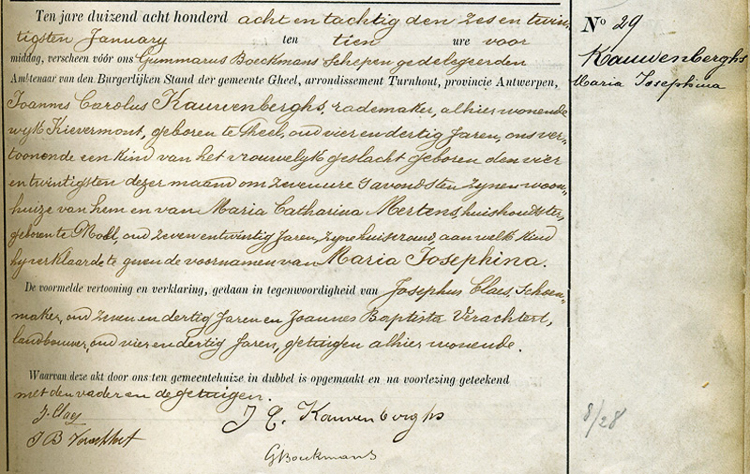 Ten jare duizend acht honderd acht en tachtig den zes en twin-
tigsten January ten tien ure voor
middag, verscheen vóór ons Gummarus Boeckmans Schepen gedelegeerden
Ambtenaar van den Burgerlijken Stand der gemeente Gheel, arrondissement Turnhout, provincie Antwerpen,
Joannes Carolus Kauwenberghs, rademaker, alhier wonende
wyk Kievermont, geboren te Gheel, oud vier en dertig Jaren, ons ver-
toonende een kind van het vrouwelyk geslacht geboren den vier
en twintigsten dezer maand om zeven ure s'avonds ten zynen woon-
huize van hem en van Maria Catharina Mertens huishoudster,
geboren te Moll, oud zeven en twintig Jaren, zyne huisvrouw, aan welk kind
hy verklaarde te geven de voornamen van Maria Josephina.
De voormelde vertooning en verklaring, gedaan in tegenwoordigheid van Josephus Claes, Schoen-
maker, oud zeven en dertig Jaren en Joannes Baptista Verachtert,
landbouwer, oud vier en dertig Jaren, getuigen alhier wonende.
Waarvan deze akt door ons ten gemeentehuize in dubbel is opgemaakt en na voorlezing geteekend
met den vader en de getuigen.
J. Claes
J C. Kauwenberghs
J B Verachtert
G Boeckmans
N° 29
Kauwenberghs
Maria Josephina
8/28